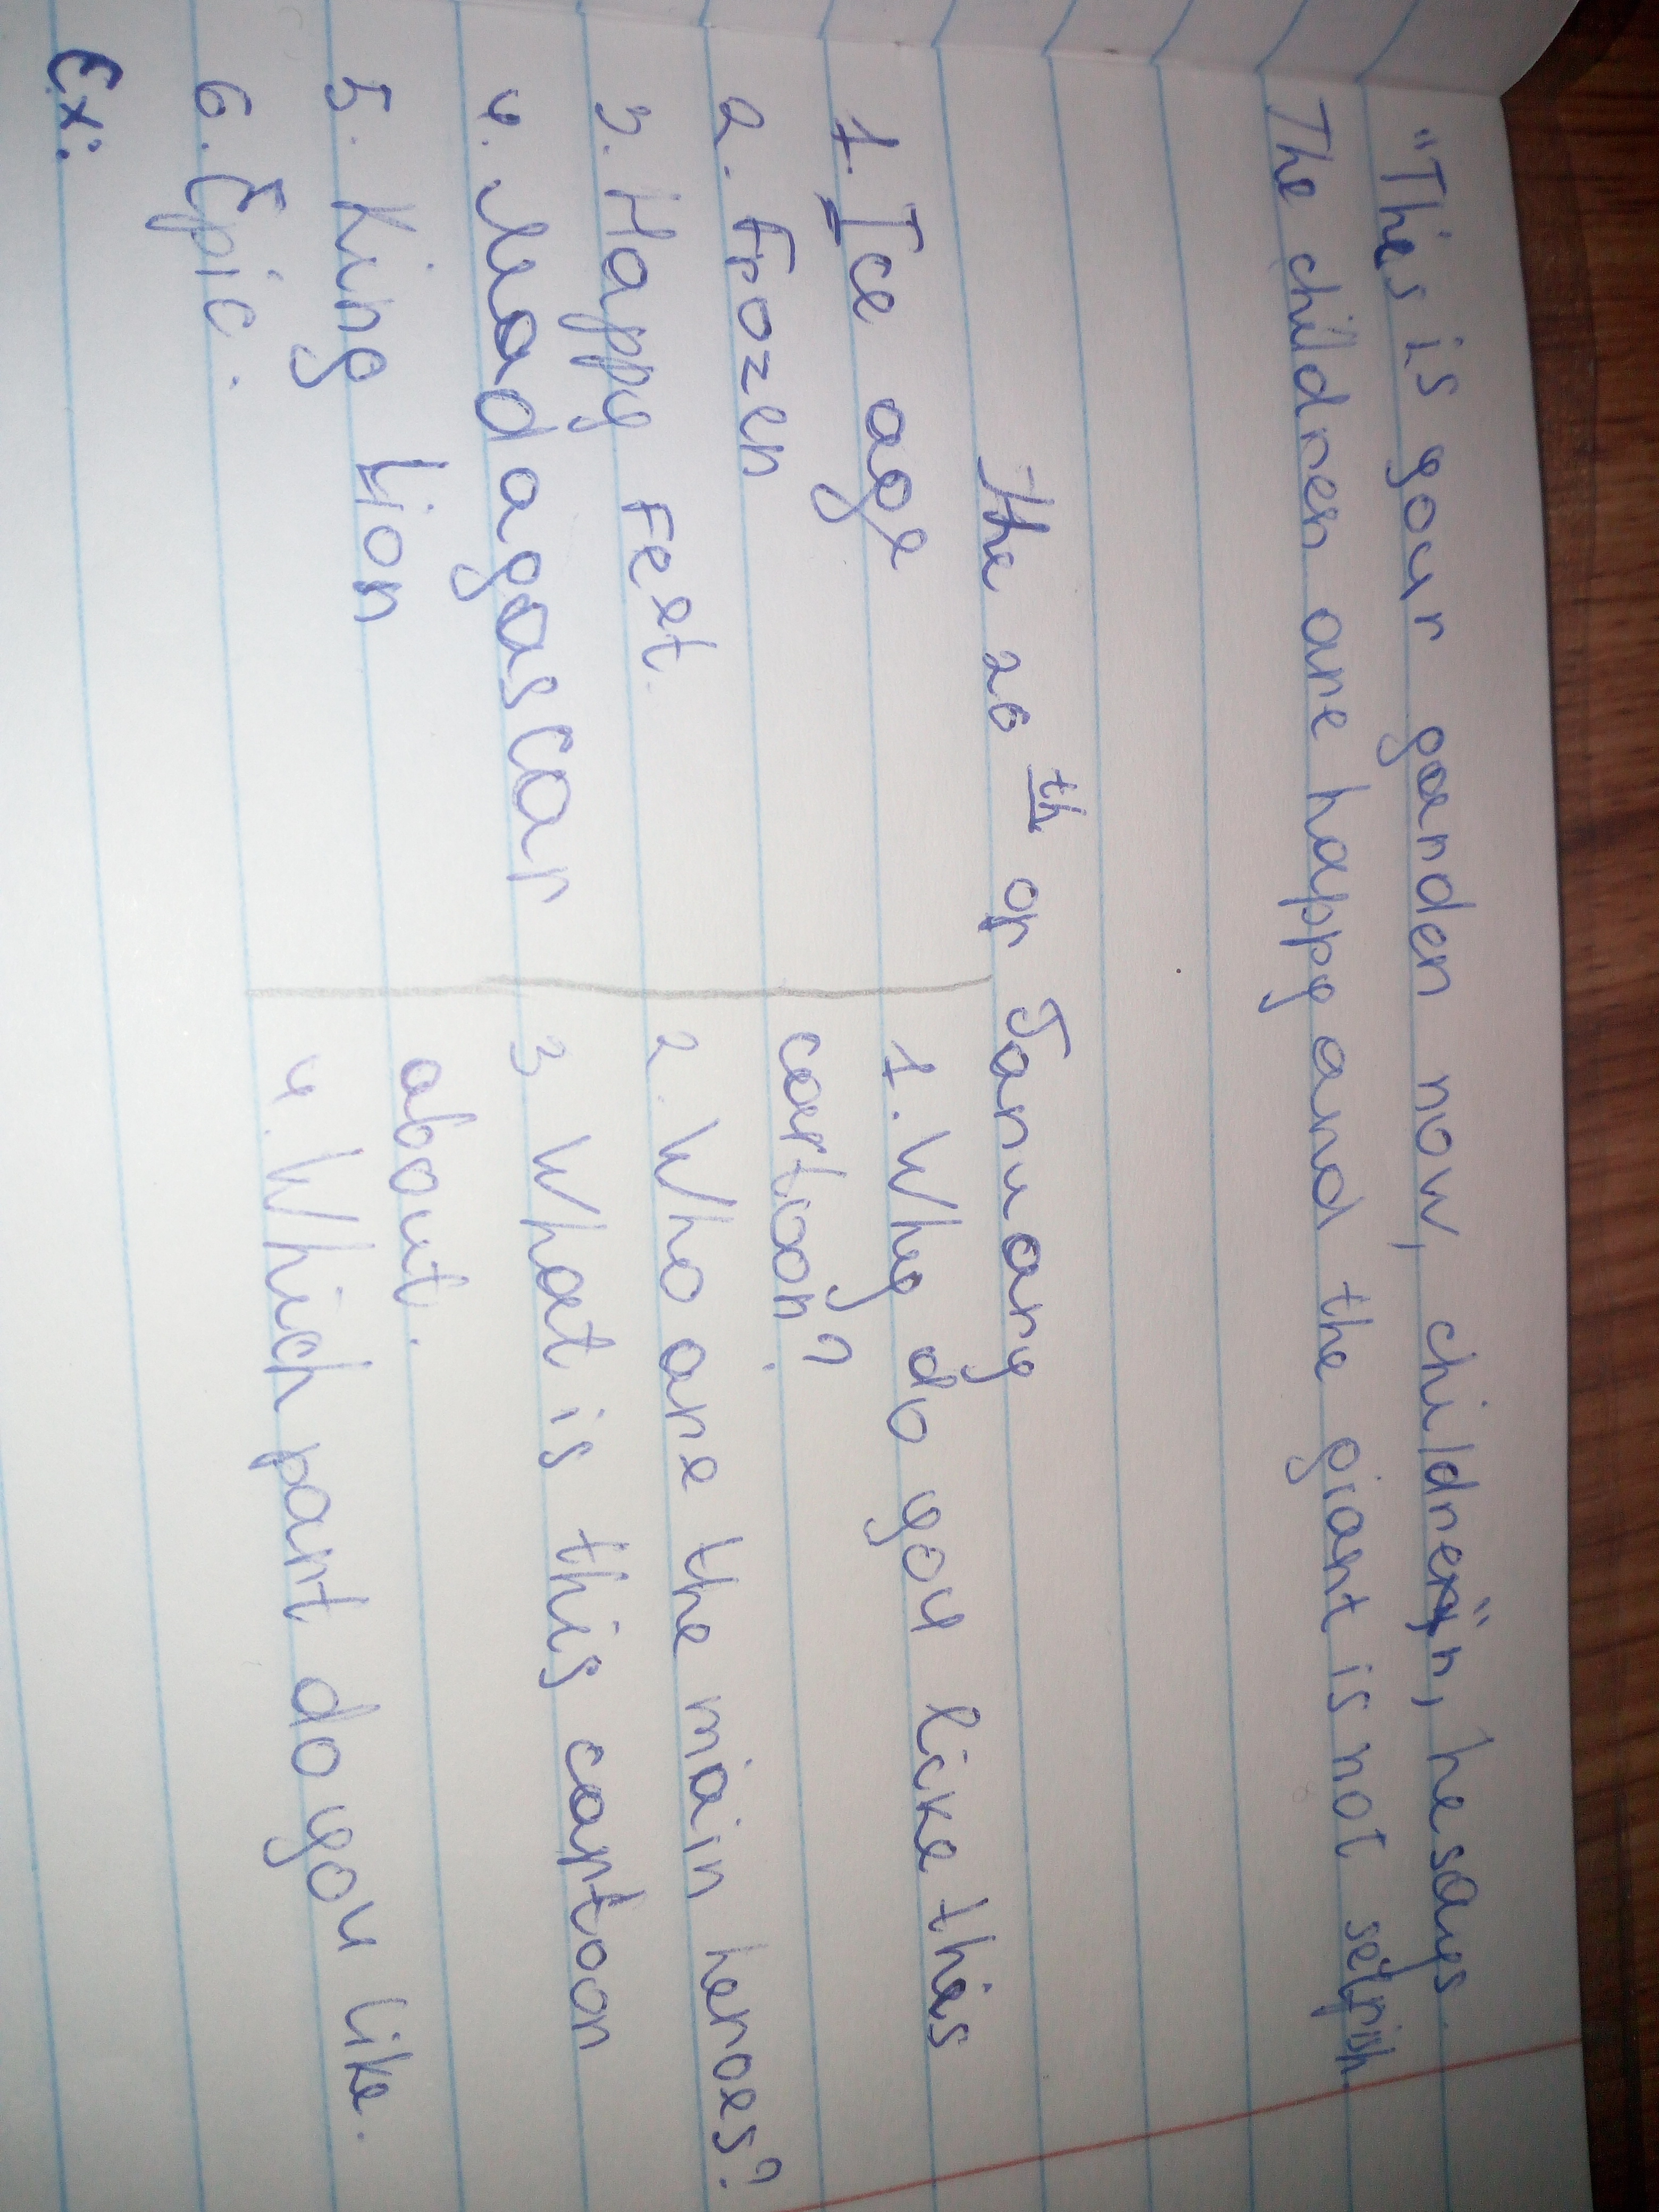 "This is your garden now, children", he says.
The children are happy and the giant is not selfish.
The 20th of January
1. Ice age
2. Frozen
3. Happy Feet.
4. Madagascar
5. King Lion
6. Epic.
Ex:
1. Why do you like this
cartoon?
2. Who are the main heroes?
3 What is this cartoon
about.
4. Which part do you like.